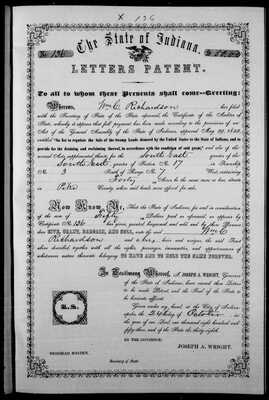 X 136
The State of Indiana,
No. 136
LETTERS PATENT.
To all to whom these Presents shall come—Greeting:
Whereas, Wm C. Richardson has filed
with the Secretary of State of the State aforesaid the Certificate of the Auditor of
State, whereby it appears that full payment has been made according to the provisions of an
Act of the General Assembly of the State of Indiana, approved May 29, 1852,
entitled "An Act to regulate the Sale of the Swamp Lands donated by the United States to the State of Indiana, and to
provide for the draining and reclaiming thereof, in accordance with the condition of said grant," and also of the
several Acts supplemental thereto, for the South East quarter of the
South East quarter of Section No. 17 in Township
No. 3 of Range No. 7 West, containing
Forty Acres, be the same more or less, situate
in Pike County, when said lands were offered for sale.
Now Know Ye, That the State of Indiana, for and in consideration
of the sum of Fifty Dollars, paid as aforesaid, as appears by
Certificate No. 136 has given, granted, bargained and sold, and by these Presents
does GIVE, GRANT, BARGAIN, AND SELL, unto the said Wm C
Richardson and to heirs and assigns, the said Tract
above described, together with all the rights, privileges, immunities, and appurtenances of
whatsoever nature thereunto belonging, TO HAVE AND TO HOLD THE SAME FOREVER.
In Testimony Whereof, I, JOSEPH A. WRIGHT, Governor
of the State of Indiana, have caused these Letters
to be made Patent, and the Seal of the State to
be hereunto affixed.
L.S.
Given under my hand, at the City of Indianapolis,
the 24th day of October in
the year of our Lord, one thousand eight hundred and
fifty-four, and of the State the thirty-eighth.
BY THE GOVERNOR:
JOSEPH A. WRIGHT.
NEHEMIAH HAYDEN,
Secretary of State